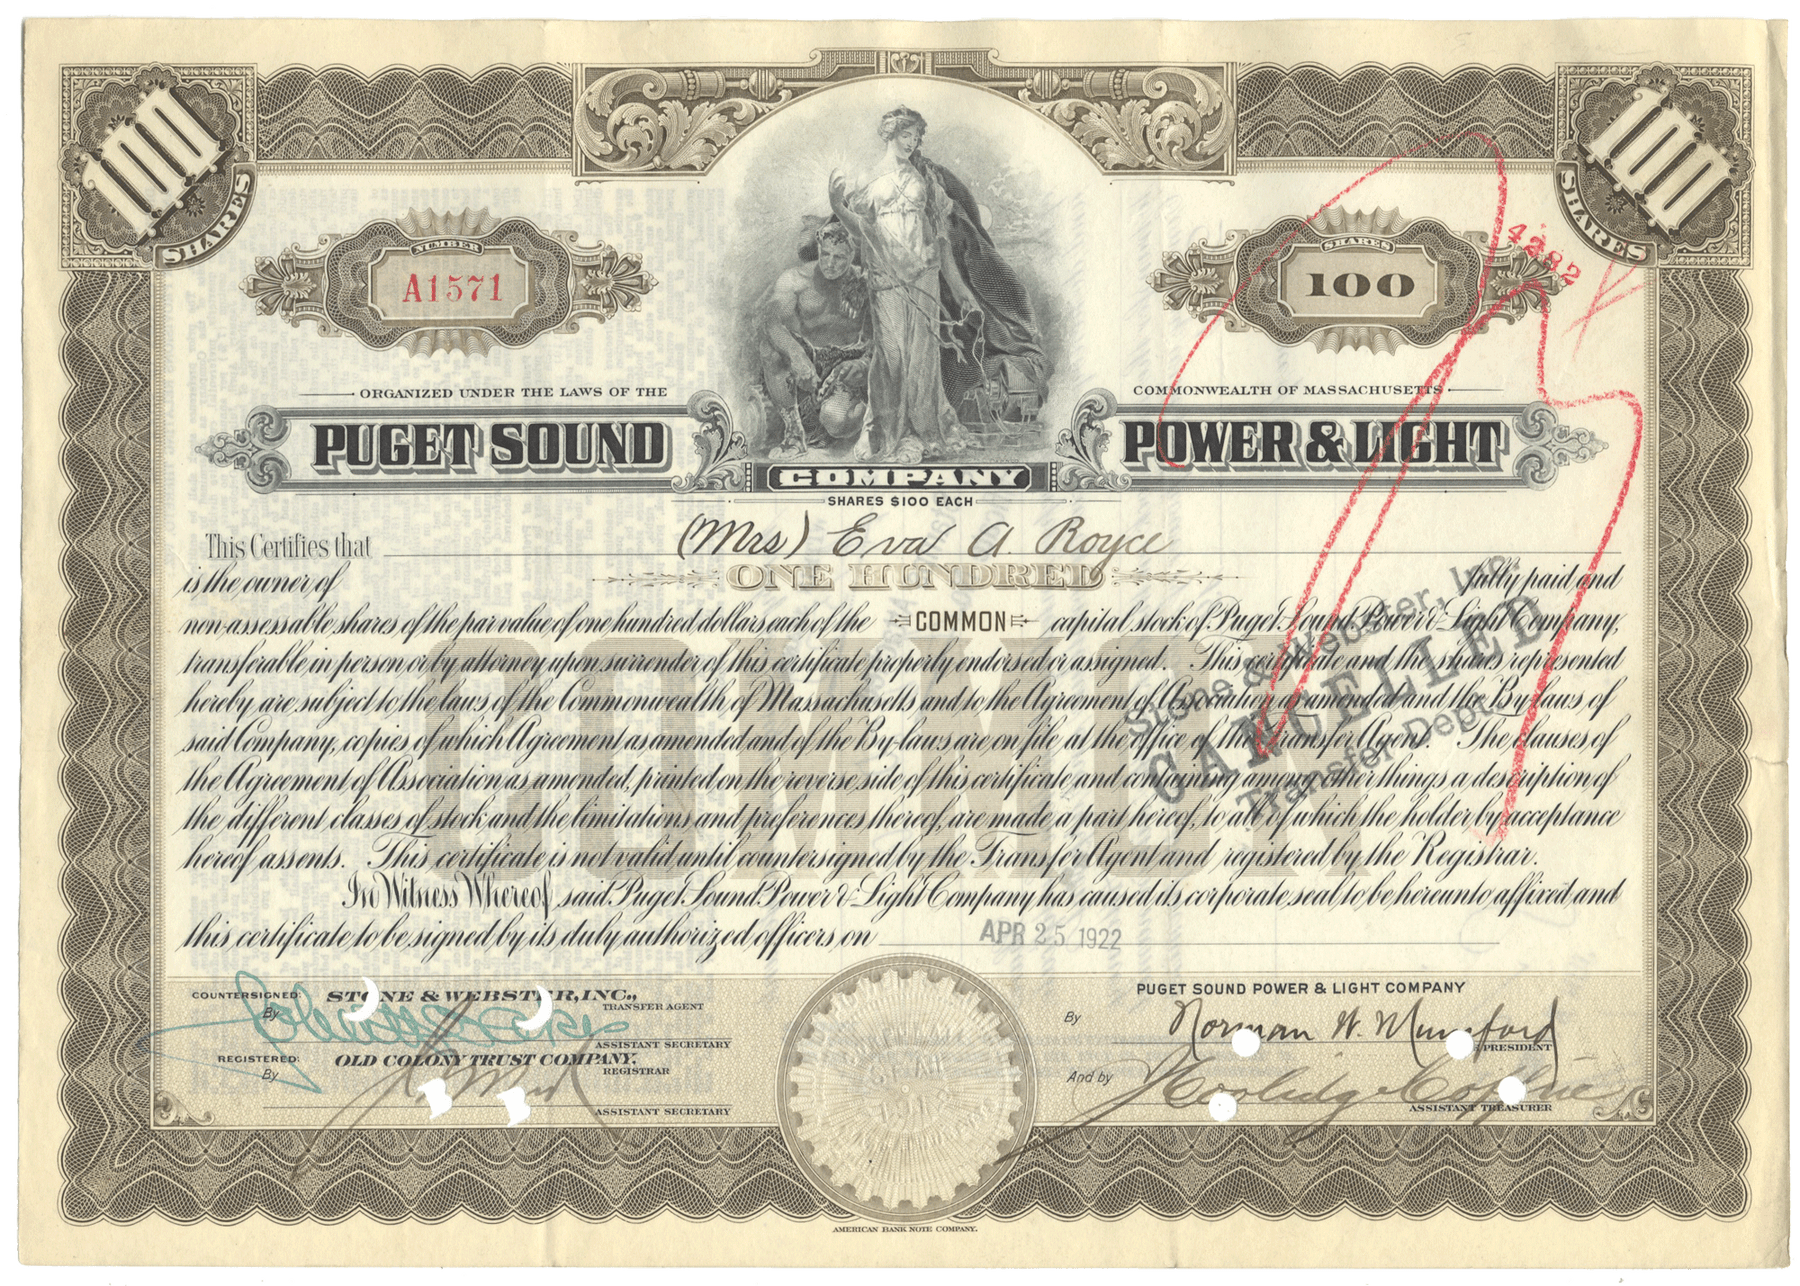 100 SHARES
100 SHARES
NUMBER
A1571
SHARES
100
4282
ORGANIZED UNDER THE LAWS OF THE
COMMONWEALTH OF MASSACHUSETTS
PUGET SOUND
POWER & LIGHT
COMPANY
SHARES $100 EACH
This Certifies that (Mrs) Eva A. Royce
is the owner of ONE HUNDRED fully paid and
non-assessable shares of the par value of one hundred dollars each of the COMMON capital stock of Puget Sound Power & Light Company,
transferable in person or by attorney upon surrender of this certificate properly endorsed or assigned. This certificate and the shares represented
hereby are subject to the laws of the Commonwealth of Massachusetts and to the Agreement of Association as amended and the By-laws of
said Company, copies of which Agreement as amended and of the By-laws are on file at the office of the Transfer Agent. The clauses of
the Agreement of Association as amended, printed on the reverse side of this certificate and containing among other things a description of
the different classes of stock and the limitations and preferences thereof, are made a part hereof, to all of which the holder by acceptance
hereof assents. This certificate is not valid until countersigned by the Transfer Agent and registered by the Registrar.
In Witness Whereof, said Puget Sound Power & Light Company has caused its corporate seal to be hereunto affixed and
this certificate to be signed by its duly authorized officers on APR 25 1922
COMMON
Stone & Webster, Inc.
CANCELLED
Transfer Dept.
COUNTERSIGNED: STONE & WEBSTER, INC.,
TRANSFER AGENT
By
ASSISTANT SECRETARY
REGISTERED: OLD COLONY TRUST COMPANY,
REGISTRAR
By
ASSISTANT SECRETARY
PUGET SOUND POWER & LIGHT COMPANY
By Norman W. Mumford
PRESIDENT
And by Coolidge
ASSISTANT TREASURER
AMERICAN BANK NOTE COMPANY.